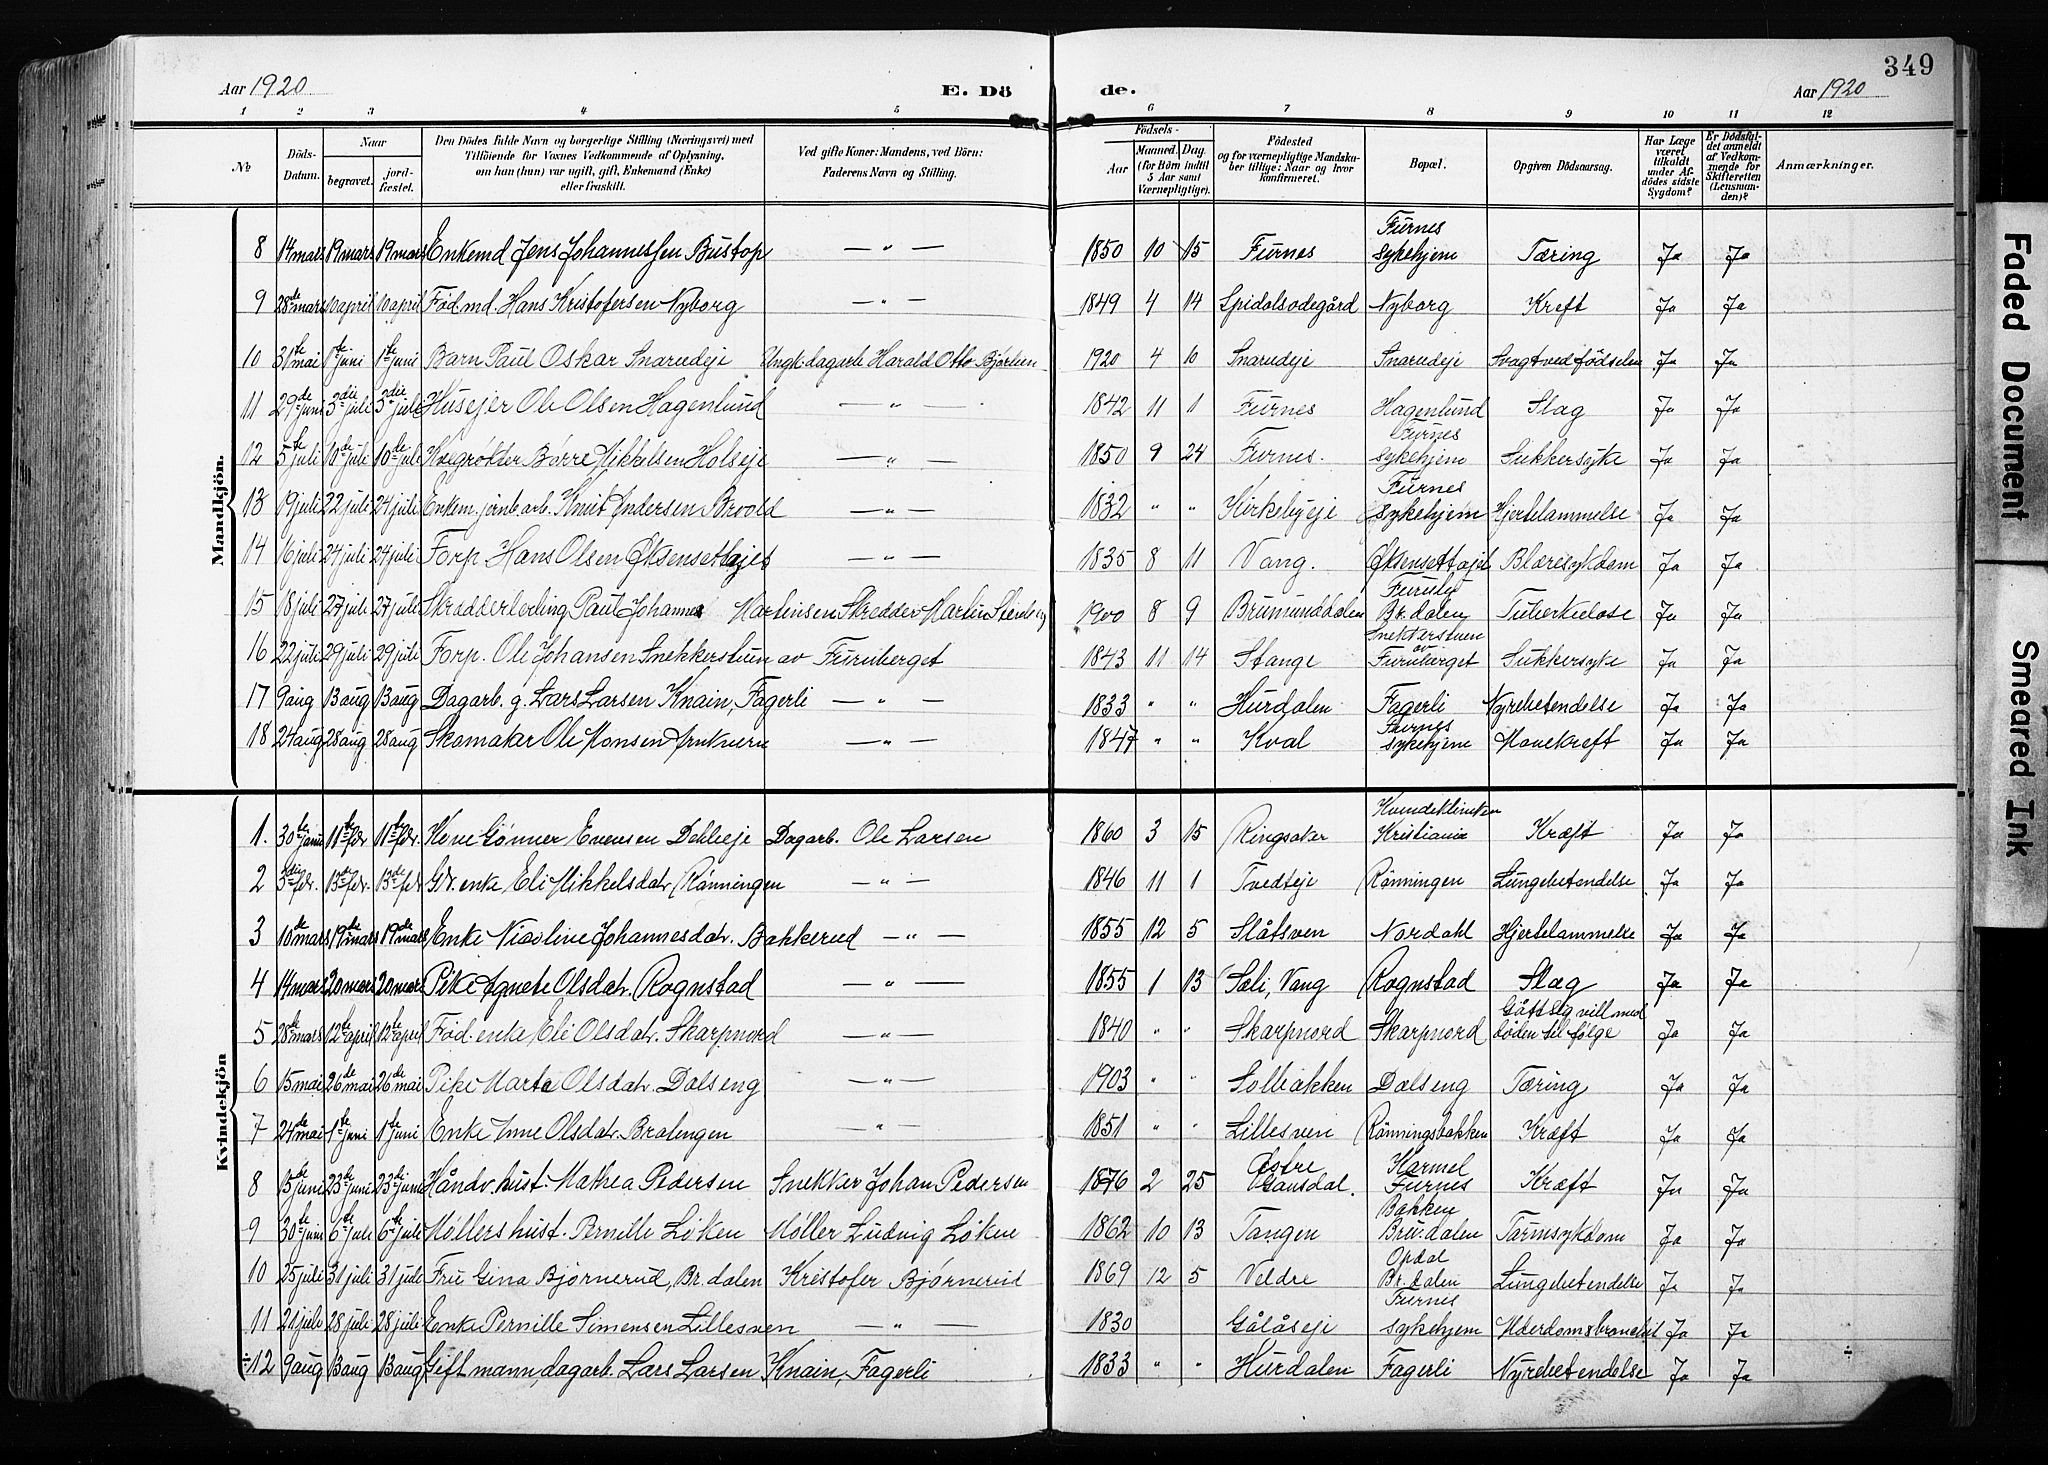 349
Aar 1920 E. Dö de. Aar 1920
1 2 3 4 5 6 7 8 9 10 11 12
No Döds-Datum. Naar begravet. jord-fæstet. Den Dödes fulde Navn og borgerlige Stilling (Næringsvei) med Tilföiende for Voxnes Vedkommende af Oplysning, om han (hun) var ugift, gift, Enkemand (Enke) eller fraskilt. Ved gifte Koner: Mandens, ved Börn: Faderens Navn og Stilling. Födsels- Aar Maaned. Dag. (for Börn indtil 5 Aar samt Værnepligtige). Födested og for værnepligtige Mandskaber tillige: Naar og hvor konfirmeret. Bopæl. Opgiven Dödsaarsag. Har Læge været tilkaldt under Afdödes sidste Sygdom? Er Dödsfaldet anmeldt af Vedkommende for Skifteretten (Lensmanden)? Anmærkninger.
Mandkjön.
8 14 mars 19 mars 19 mars Enkemd Jens Johannessen Bustop — " — 1850 10 15 Furnes Furnes sykehjem Tæring Ja Ja
9 28de mars 10 april 10 april Föd.md. Hans Kristofersen Nyborg — " — 1849 4 14 Spidolsødegård Nyborg Kreft Ja Ja
10 31te mai 1te juni 1te juni Barn Paul Oskar Snarudeje Ungk. dagarb Harald Otto 1920 4 10 Snarudeje Snarudeje Svagt ved födselen Ja Ja
11 29de juni 3die juli 3die juli Husejer Ole Olsen Hagenlund — " — 1842 11 1 Furnes Hagenlund Slag Ja Ja
12 5te juli 10de juli 10de juli Børre Mikkelsen Holseje — " — 1850 9 24 Furnes. Furnes sykehjem Sukkersyke Ja Ja
13 19 juli 22 juli 24 juli Enkem. jernb.arb. Knut Andersen — " — 1832 " " Kirkebyeje Furnes sykehjem Hjertelammelse Ja Ja
14 16 juli 24 juli 24 juli Forp. Hans Olsen Øksensethajet — " — 1835 8 11 Vang. Blæresykdom Ja Ja
15 18 juli 27 juli 27 juli Skrædderlerling Paul Johannes Martinsen Skredder Martin 1900 8 9 Brumunddalen Furuly Br.dalen Tuberkulose Ja Ja
16 22 juli 29 juli 29 juli Forp. Ole Johansen Snekkerstuen av Furuberget 1843 11 14 Stange Snekkerstuen av Furuberget Sukkersyke Ja Ja
17 9 aug 13 aug 13 aug Dagarb. g. Lars Larsen Knain, Fagerli — " — 1833 " " Hurdalen Fagerli Nyrebetendelse Ja Ja
18 24 aug 28 aug 28 aug Skomaker Ole Monsen — " — 1847 " " Kval Furnes sykehjem Mavekreft Ja Ja
Kvindekjön
1. 30te janu 11te febr 11te febr. Kone Gønner Evensen Dehlieje Dagarb. Ole Larsen 1860 3 15 Ringsaker Kvindeklinken Kristiania Kræft Ja Ja
2 3die febr. 13de febr. 13de febr Gdr. enke Eli Mikkelsdatr Rönningen — " — 1846 11 1 Tvedteje Rönningen Lungebetendelse Ja Ja
3 10de mars 19de mars 19de mars Enke Nicoline Johannesdatr. Bakkerud — " — 1855 12 5 Slåtsven Nordahl Hjertelammelse Ja Ja
4 14 mars 20 mars 20 mars Pike Agnete Olsdatr. Rognstad — " — 1855 1 13 Sæli, Vang Rognstad Slag Ja Ja
5 28de mars 12te april 12te april Föd. enke Eli Olsdatr. Skarpnord — " — 1840 " " Skarpnord Skarpnord Gått sig vill med döden til følge Ja Ja
6 15 mai 26de mai 26de mai Pike Marte Olsdatr. Dalseng — " — 1903 " " Solbakken Dalseng Tæring Ja Ja
7 24de mai 1te juni 1te juni Enke Anne Olsdatr. Bratengen — " — 1851 " " Lillesven Rönningsbakken Kræft Ja Ja
8 15de juni 23de juni 23de juni Håndv.hust. Mathea Pedersen Snekker Johan Pedersen 1876 2 25 Østre Gausdal. Karmel Furnes Kræft Ja Ja
9 30te juni 6te juli 6te juli Møllers hust. Pernille Løken Møller Ludvig Løken 1862 10 13 Tangen Bakken Bru.dalen Tarmsykdom Ja Ja
10 25 juli 31 juli 31 juli Fru Gina Bjørnerud, Br.dalen Kristofer Bjørnerud 1869 12 5 Veldre Opdal Br.dalen Lungebetendelse Ja Ja
11 21 jule 28 juli 28 juli Enke Pernille Simensen Lillesven — " — 1830 Gålåseje Furnes sykehjem Alderdomsbronchit Ja Ja
÷12 9 aug 13 aug 13 aug Gift mann, dagarb. Lars Larsen Knain, Fagerli 1833 " " Hurdalen Fagerli Nyrebetendelse Ja Ja ÷
Faded Document
Smeared Ink